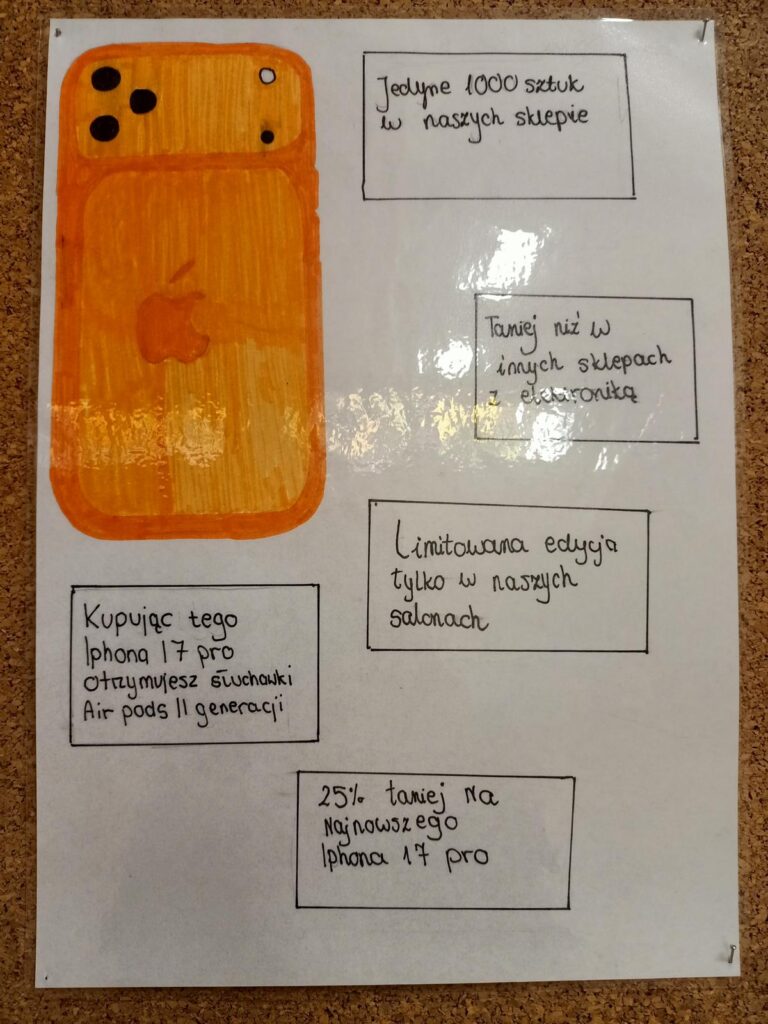 Jedyne 1000 sztuk
w naszych sklepie
Taniej niż w
innych sklepach
z elektroniką
Limitowana edycja
tylko w naszych
salonach
Kupując tego
Iphona 17 pro
otrzymujesz słuchawki
Air pods II generacji
25% taniej na
najnowszego
Iphona 17 pro